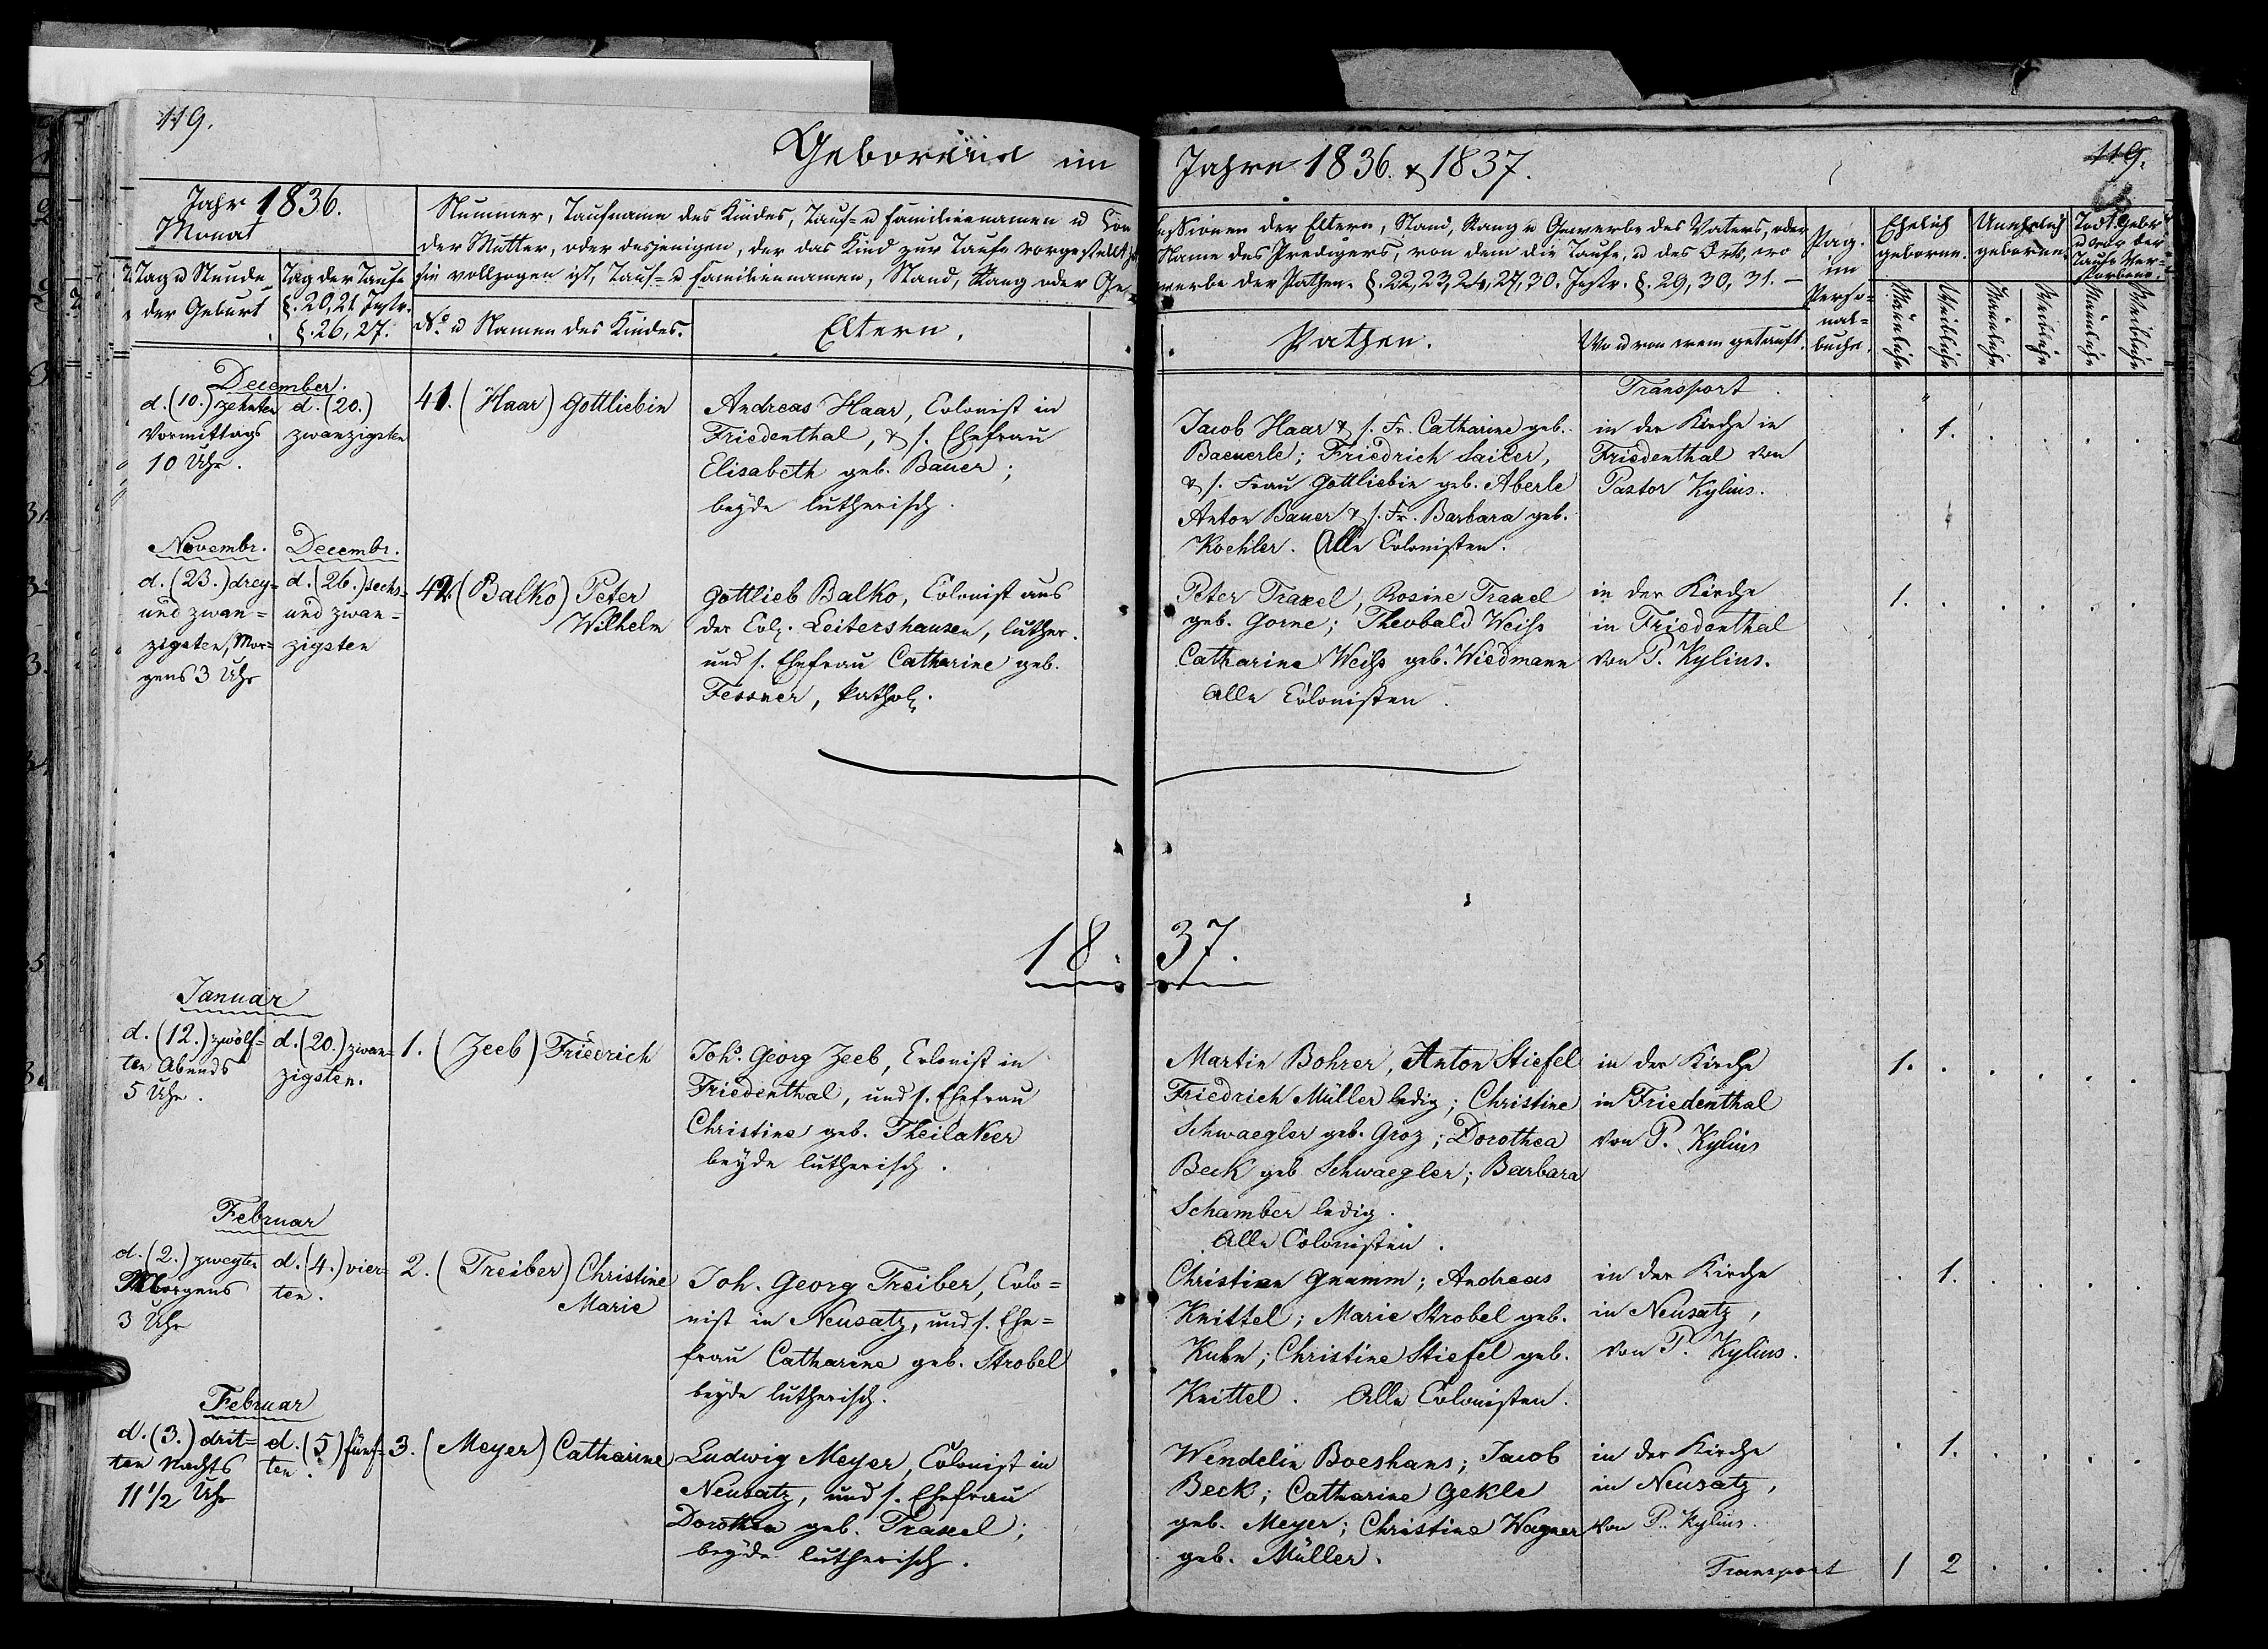 119.
Geborene im Jahre 1836. & 1837.
119.
Jahr 1836.
Monat
Tag u Stunde der Geburt
Tag der Taufe §. 20, 21 Instr. §. 26, 27.
Nummer, Taufname des Kindes, Tauf- u Familiennamen u Confessionen der Eltern, Stand, Rang u Gewerbe des Vaters, oder
der Mutter, oder desjenigen, der das Kind zur Taufe vorgestellt hat, Name des Predigers, von dem die Taufe, u des Orts, wo
sie vollzogen ist, Tauf- u Familiennamen, Stand, Rang oder Gewerbe der Pathen. §. 22, 23, 24, 27, 30. Instr. §. 29, 30, 31. –
No. u Namen des Kindes.
Eltern.
Pathen.
Wo u von wem getauft.
Pag. im Perso-
nal-
buche.
Ehelich geborne.
Unehelich geborene
Todt Gebor
u vor der
Taufe Ver-
storbene.
Männliche
Weibliche
Männliche
Weibliche
Männliche
Weibliche
Transport
December.
d. (10.) zehnten
Vormittags
10 Uhr.
d. (20.)
zwanzigsten
41. (Haar) Gottliebin
Andreas Haar, Colonist in
Friedenthal, & s. Ehefrau
Elisabeth geb. Bauer;
beyde lutherisch.
Jacob Haar & s. Fr. Catharine geb.
Baeuerle; Friedrich Sailer,
& s. Frau Gottliebin geb. Aberle
Anton Bauer & s. Fr. Barbara geb.
Koehler. Alle Colonisten.
in der Kirche in
Friedenthal von
Pastor Kylius.
1.
Novembr.
d. (23.) drey-
und zwan-
zigsten, Mor-
gens 3 Uhr
Decembr.
d. (26.) sechs-
und zwan-
zigsten
42. (Balko) Peter
Wilhelm
Gottlieb Balko, Colonist aus
der Col. Leitershausen, luther.
und s. Ehefrau Catharine geb.
Fessner, kathol.
Peter Traxel, Rosine Traxel
geb. Gorne; Theobald Weiss
Catharina Weiss geb. Wiedmann
Alle Colonisten.
in der Kirche
in Friedenthal
von P. Kylius.
1.
18 37.
Januar
d. (12.) zwölf-
ten Abends
5 Uhr.
d. (20.) zwan-
zigsten.
1. (Zeeb) Friedrich
Joh.s Georg Zeeb, Colonist in
Friedenthal, und s. Ehefrau
Christine geb. Theilaker
beyde lutherisch.
Martin Bohrer, Anton Stiefel
Friedrich Müller ledig; Christine
Schwaegler geb. Groz; Dorothea
Beck geb Schwaegler; Barbara
Schamber ledig.
Alle Colonisten.
in der Kirche
in Friedenthal
von P. Kylius
1.
Februar
d. (2.) zweyten
Morgens
3 Uhr
d. (4.) vier-
ten.
2. (Treiber) Christine
Marie
Joh. Georg Treiber, Colo-
nist in Neusatz, und s. Ehe-
frau Catharine geb. Strobel
beyde lutherisch.
Christian Gnamm; Andreas
Knittel; Marie Strobel geb.
Kuhn; Christine Stiefel geb.
Knittel. Alle Colonisten.
in der Kirche
in Neusatz,
von P. Kylius.
1.
Februar
d. (3.) drit-
ten Nachts
11 1/2 Uhr
d. (5) fünf-
ten.
3. (Meyer) Catharine
Ludwig Meyer, Colonist in
Neusatz, und s. Ehefrau
Dorothea geb. Traxel;
beyde lutherisch.
Wendelin Boeshans; Jacob
Beck; Catharine Gekle
geb. Meyer; Christine Wagner
geb. Müller.
in der Kirche
in Neusatz,
von P. Kylius.
1.
Transport 1 2